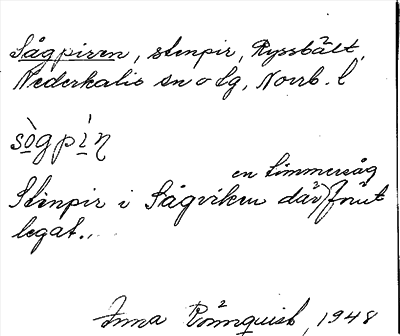 Sågpiren, stenpir, Ryssbält,
Nederkalix sn o lg, Norrb. l
sògpìn
Stenpir i Sågviken där en timmersåg förut
legat..
Anna Rönnquist, 1948